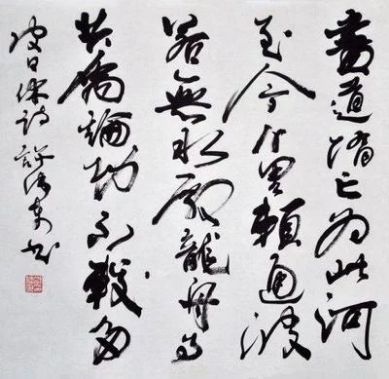 盡道隋亡为此河
至今千里賴通波
若無水殿龍舟事
共禹論功不較多
皮日休詩 許 书